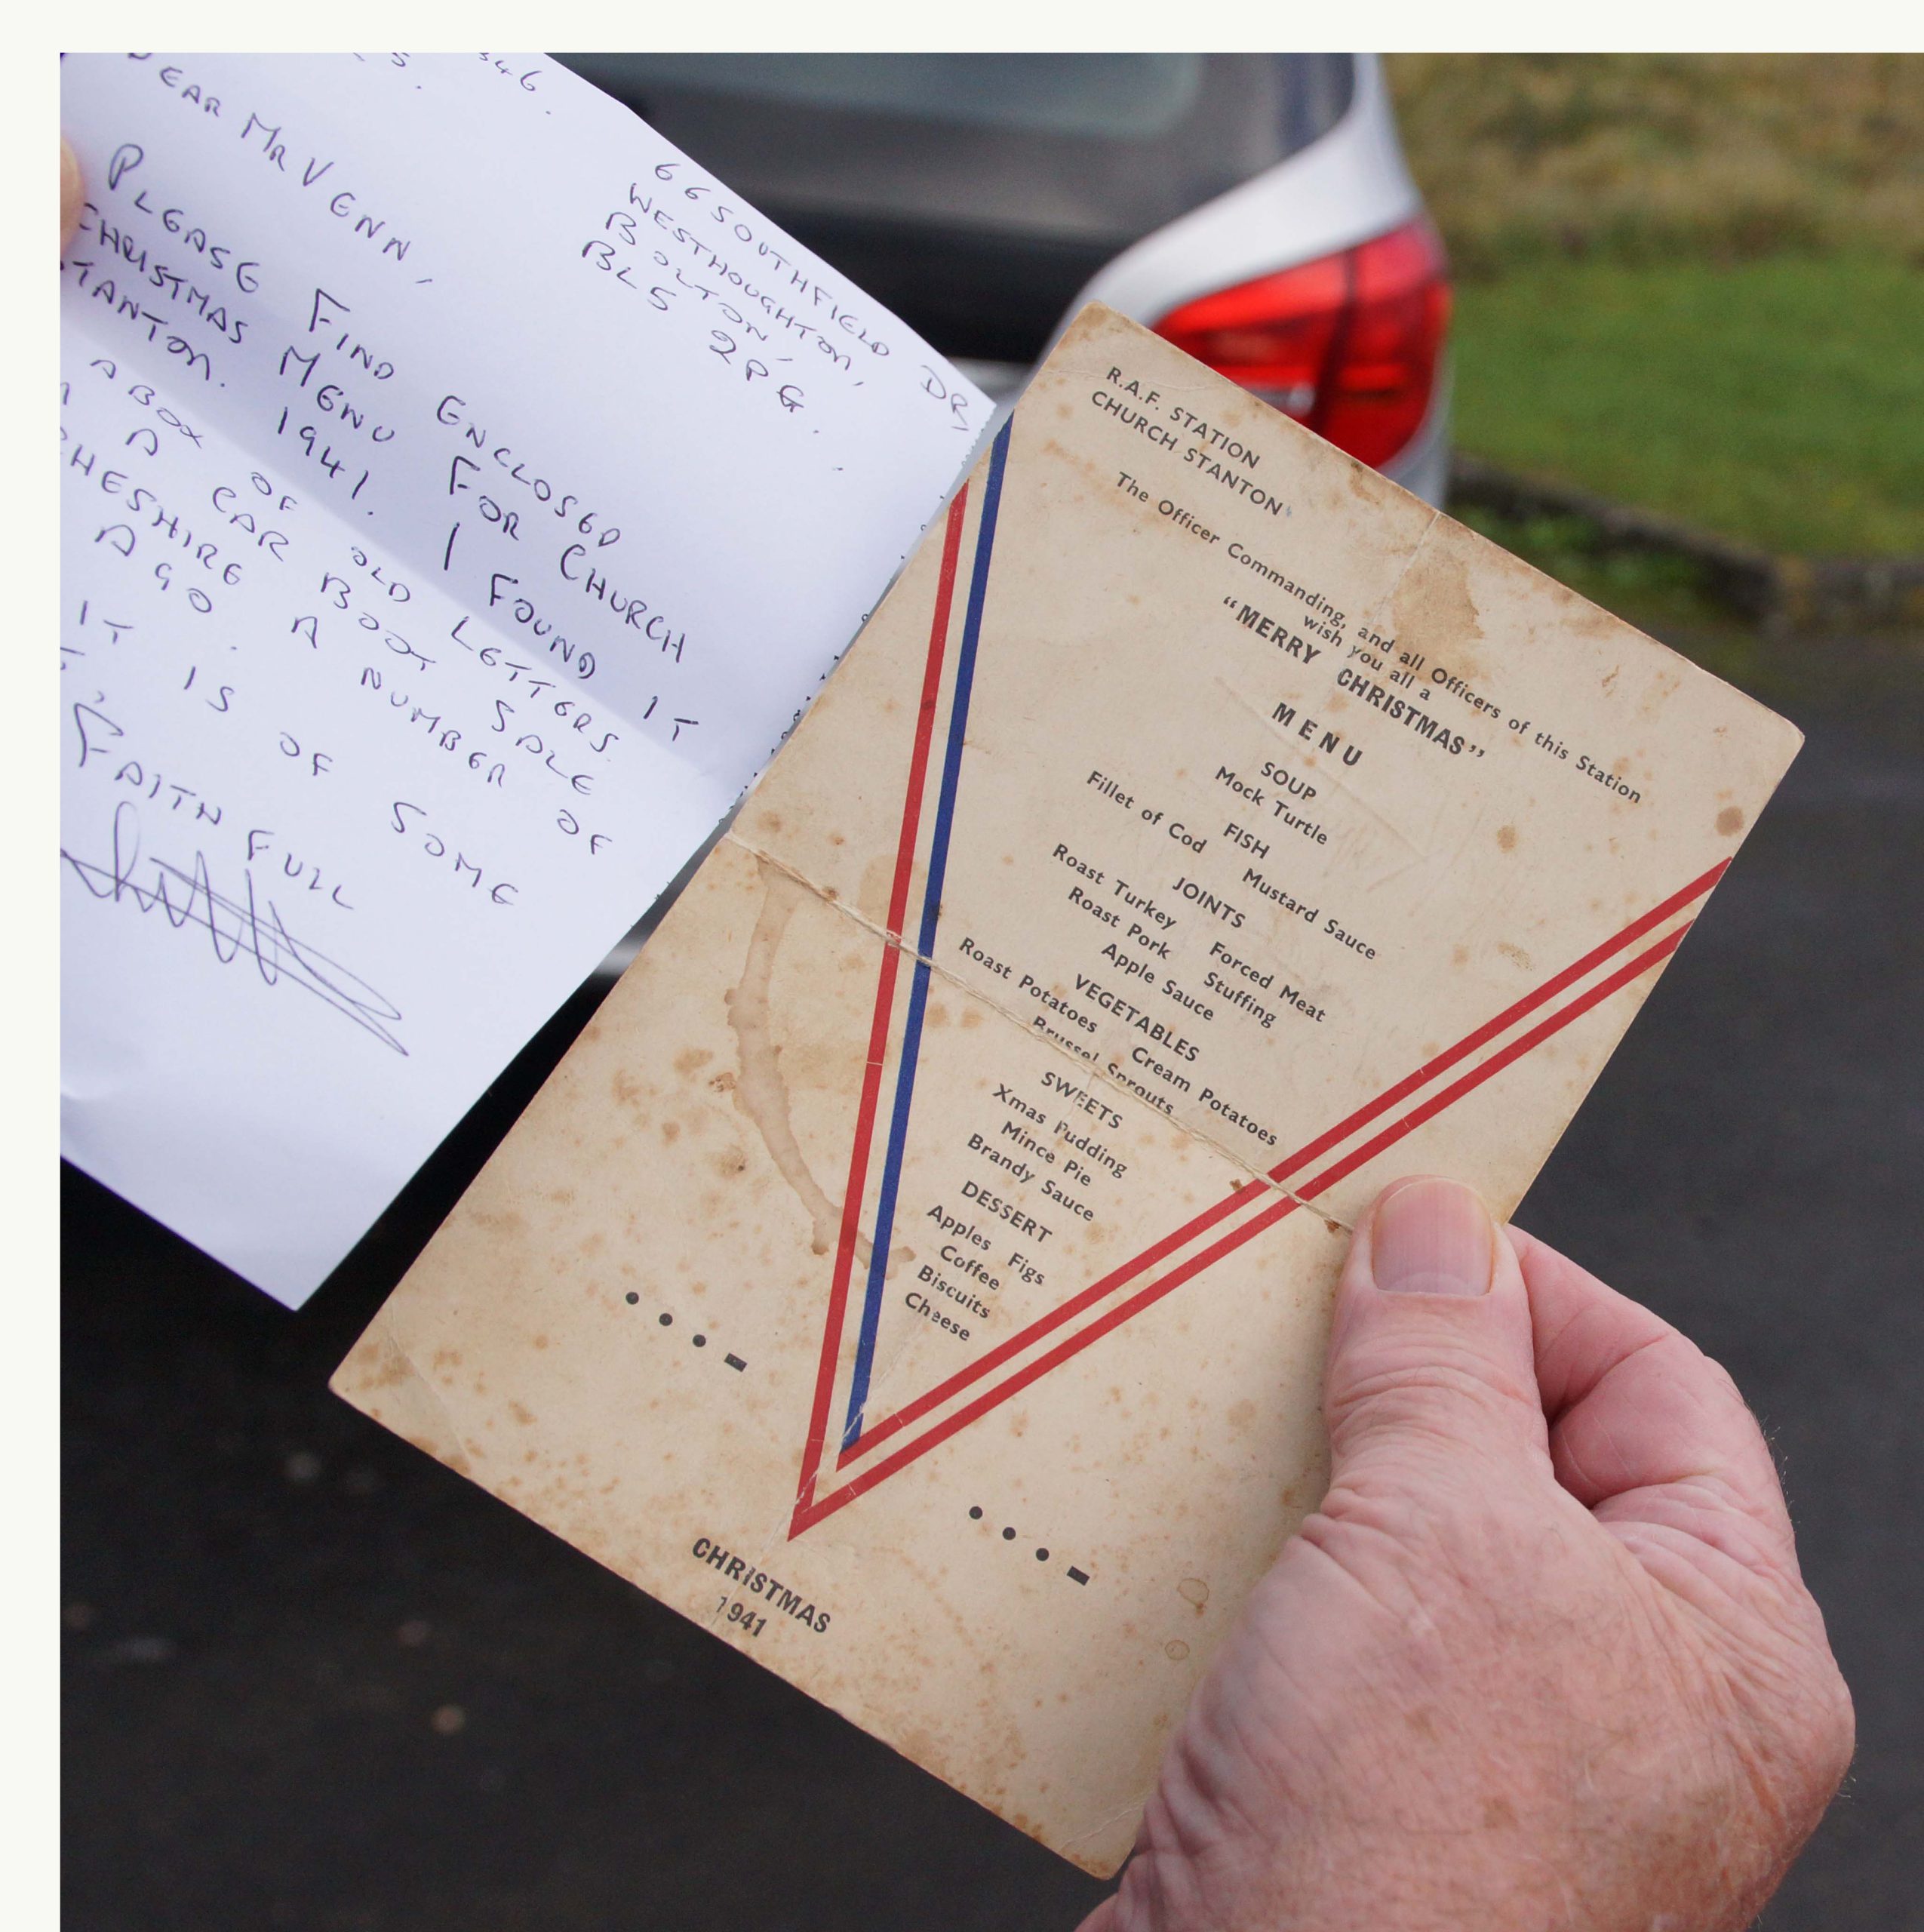 346.
66 SOUTHFIELD DR,
WESTHOUGHTON,
BOLTON,
BL5 2PG.
DEAR MR VENN,
PLEASE FIND ENCLOSED
CHRISTMAS MENU FOR CHURCH
STANTON. 1941. I FOUND IT
A BOX OF OLD LETTERS
A CAR BOOT SALE
CHESHIRE A NUMBER OF
AGO.
IT IS OF SOME
FAITHFULL
R.A.F. STATION
CHURCH STANTON
The Officer Commanding, and all Officers of this Station
wish you all a
“MERRY CHRISTMAS”
MENU
SOUP
Mock Turtle
FISH
Fillet of Cod Mustard Sauce
JOINTS
Roast Turkey Forced Meat
Roast Pork Stuffing
Apple Sauce
VEGETABLES
Roast Potatoes Cream Potatoes
Brussel Sprouts
SWEETS
Xmas Pudding
Mince Pie
Brandy Sauce
DESSERT
Apples Figs
Coffee
Biscuits
Cheese
CHRISTMAS
1941